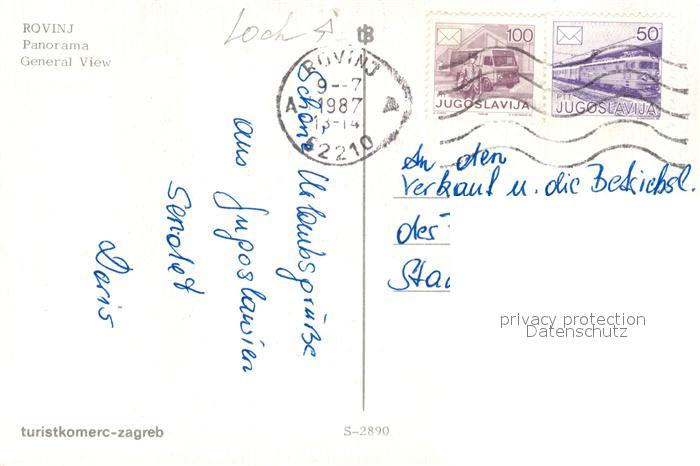 ROVINJ
Panorama
General View
Loch
ROVINJ
9--7
A 1987
13-14
52210
100
JUGOSLAVIJA
50
PTT
JUGOSLAVIJA
Schöne Urlaubsgrüße
aus Jugoslawien
Sendet
Doris
An den
Verkauf u. die Betriebsl.
des
privacy protection
Datenschutz
turistkomerc-zagreb
S-2890